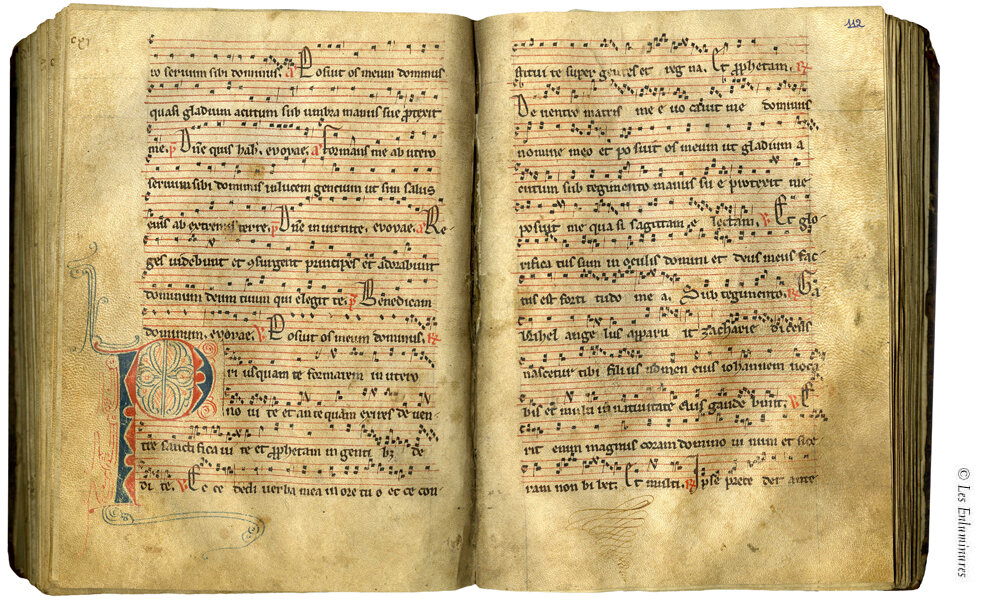 cxj
ro servum sibi dominus. a Posuit os meum dominus
quasi gladium acutum sub umbra manus sue protexit
me. p Dne quis hab. evovae. a Formans me ab utero
servum sibi dominus in lucem gencium ut sim salus
eius ab extremis terre. p Dne in virtute. evovae. a Re-
ges videbunt et ꝯsurgent principes et adorabunt
dominum deum tuum qui elegit te. p Benedicam
dominum. evovae. v Posuit os meum dominus. R
Priusquam te formarem in utero
novi te et antequam exires de ven-
tre sanctificavi te et prophetam in genti bz de
di te. v Ecce dedi verba mea in ore tuo ecce con
112
stitui te super gentes et regna. Et prophetam. R
De ventre matris mee vocavit me dominus
nomine meo et posuit os meum ut gladium a
cutum sub tegumento manus sue protexit me
posuit me quasi sagittam electam. v Et glo
rificatus sum in oculis domini et deus meus fac
tus est fortitudo mea. Sub tegumento. R Ga
brihel angelus apparuit zacharie dicens
nascetur tibi filius nomen eius iohannem voca
bis et multi in nativitate eius gaudebunt. v E
rit enim magnus coram domino vinum et sice
ram non bibet. Et multi. R Ipse preibit ante
© Les Enluminures